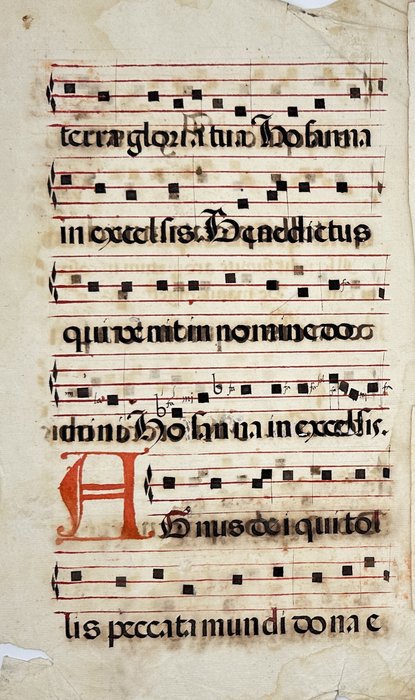 terræ gloria tua. Hosanna
in excelsis. Benedictus
qui venit in nomine do
mini. Hosanna in excelsis.
Agnus dei qui tol
lis peccata mundi dona e